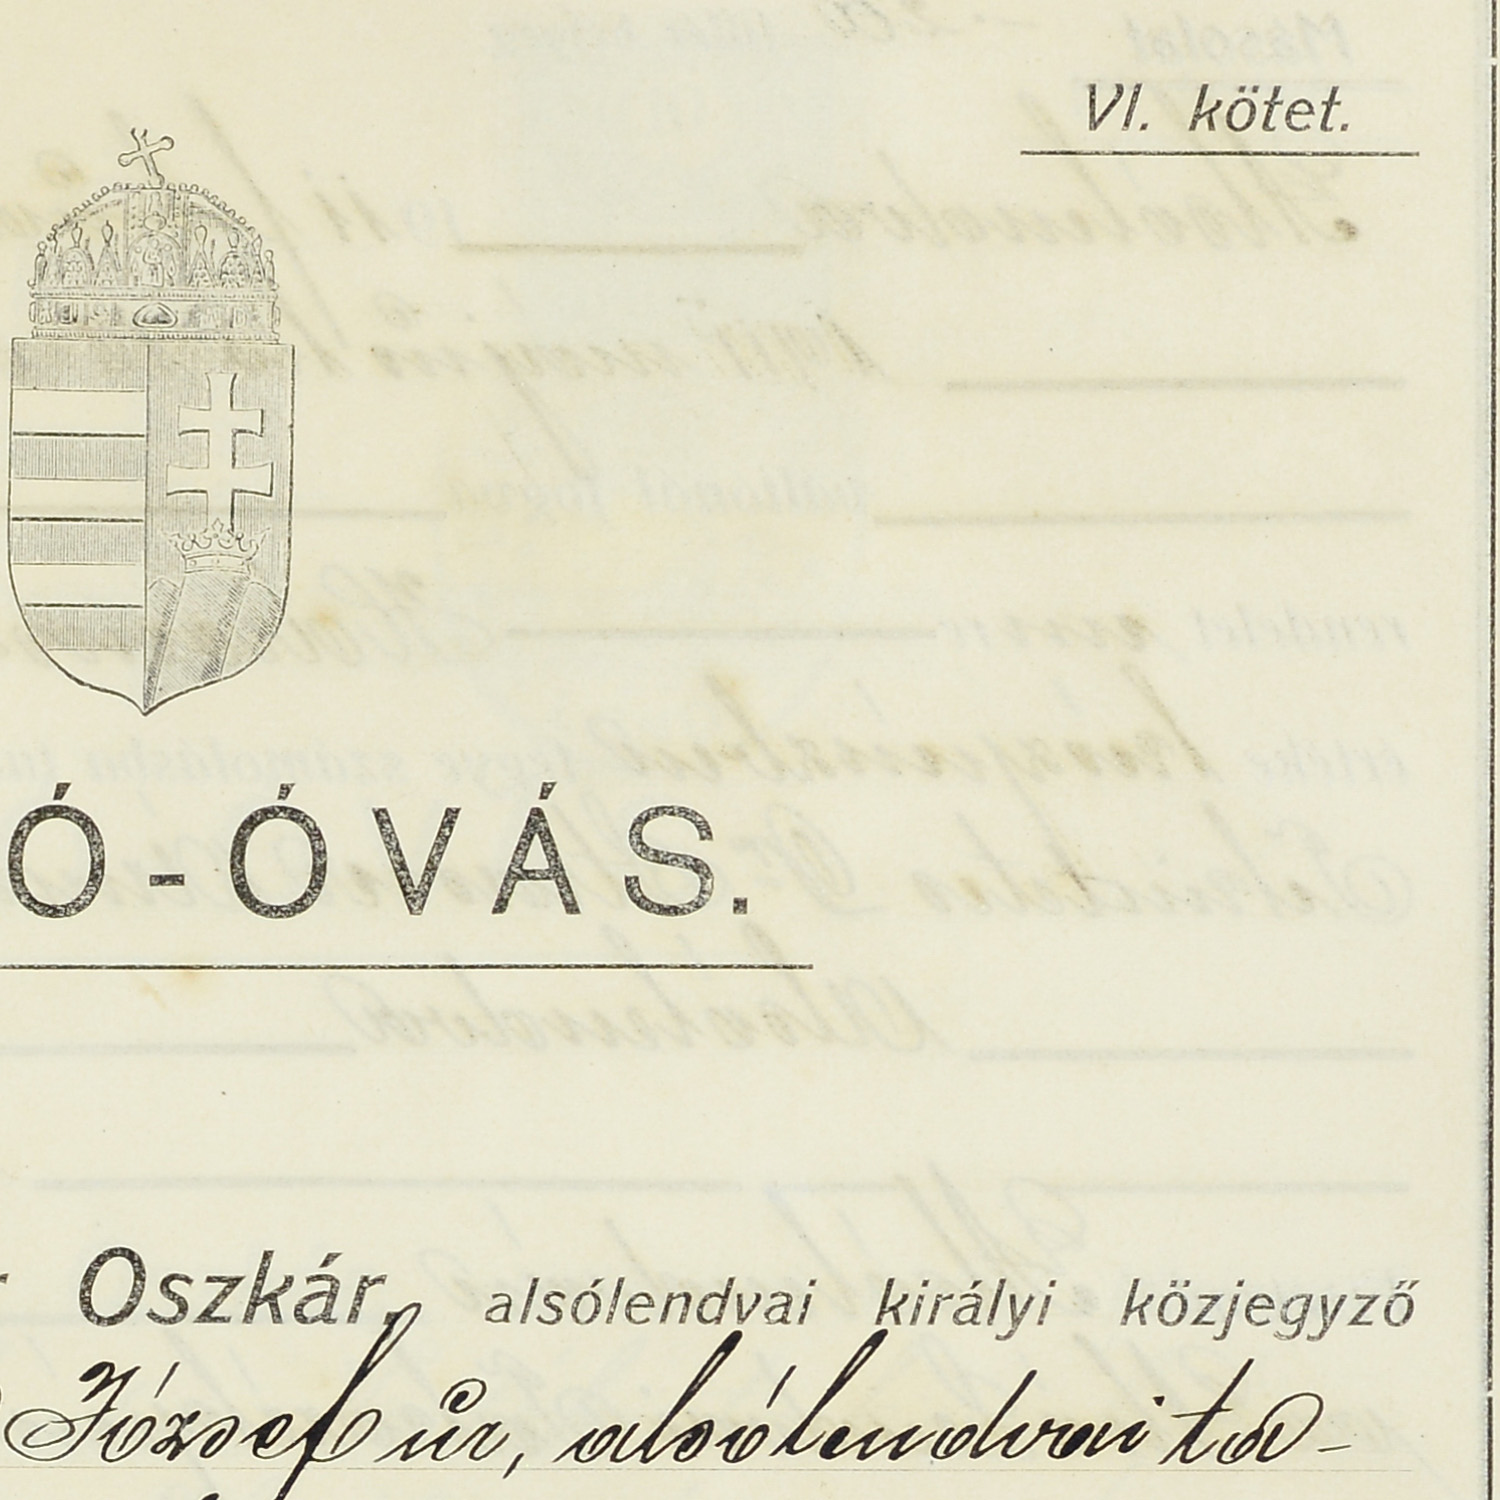 VI. kötet.
Ó-ÓVÁS.
Oszkár, alsólendvai királyi közjegyző
József úr, alsólendvai ta-